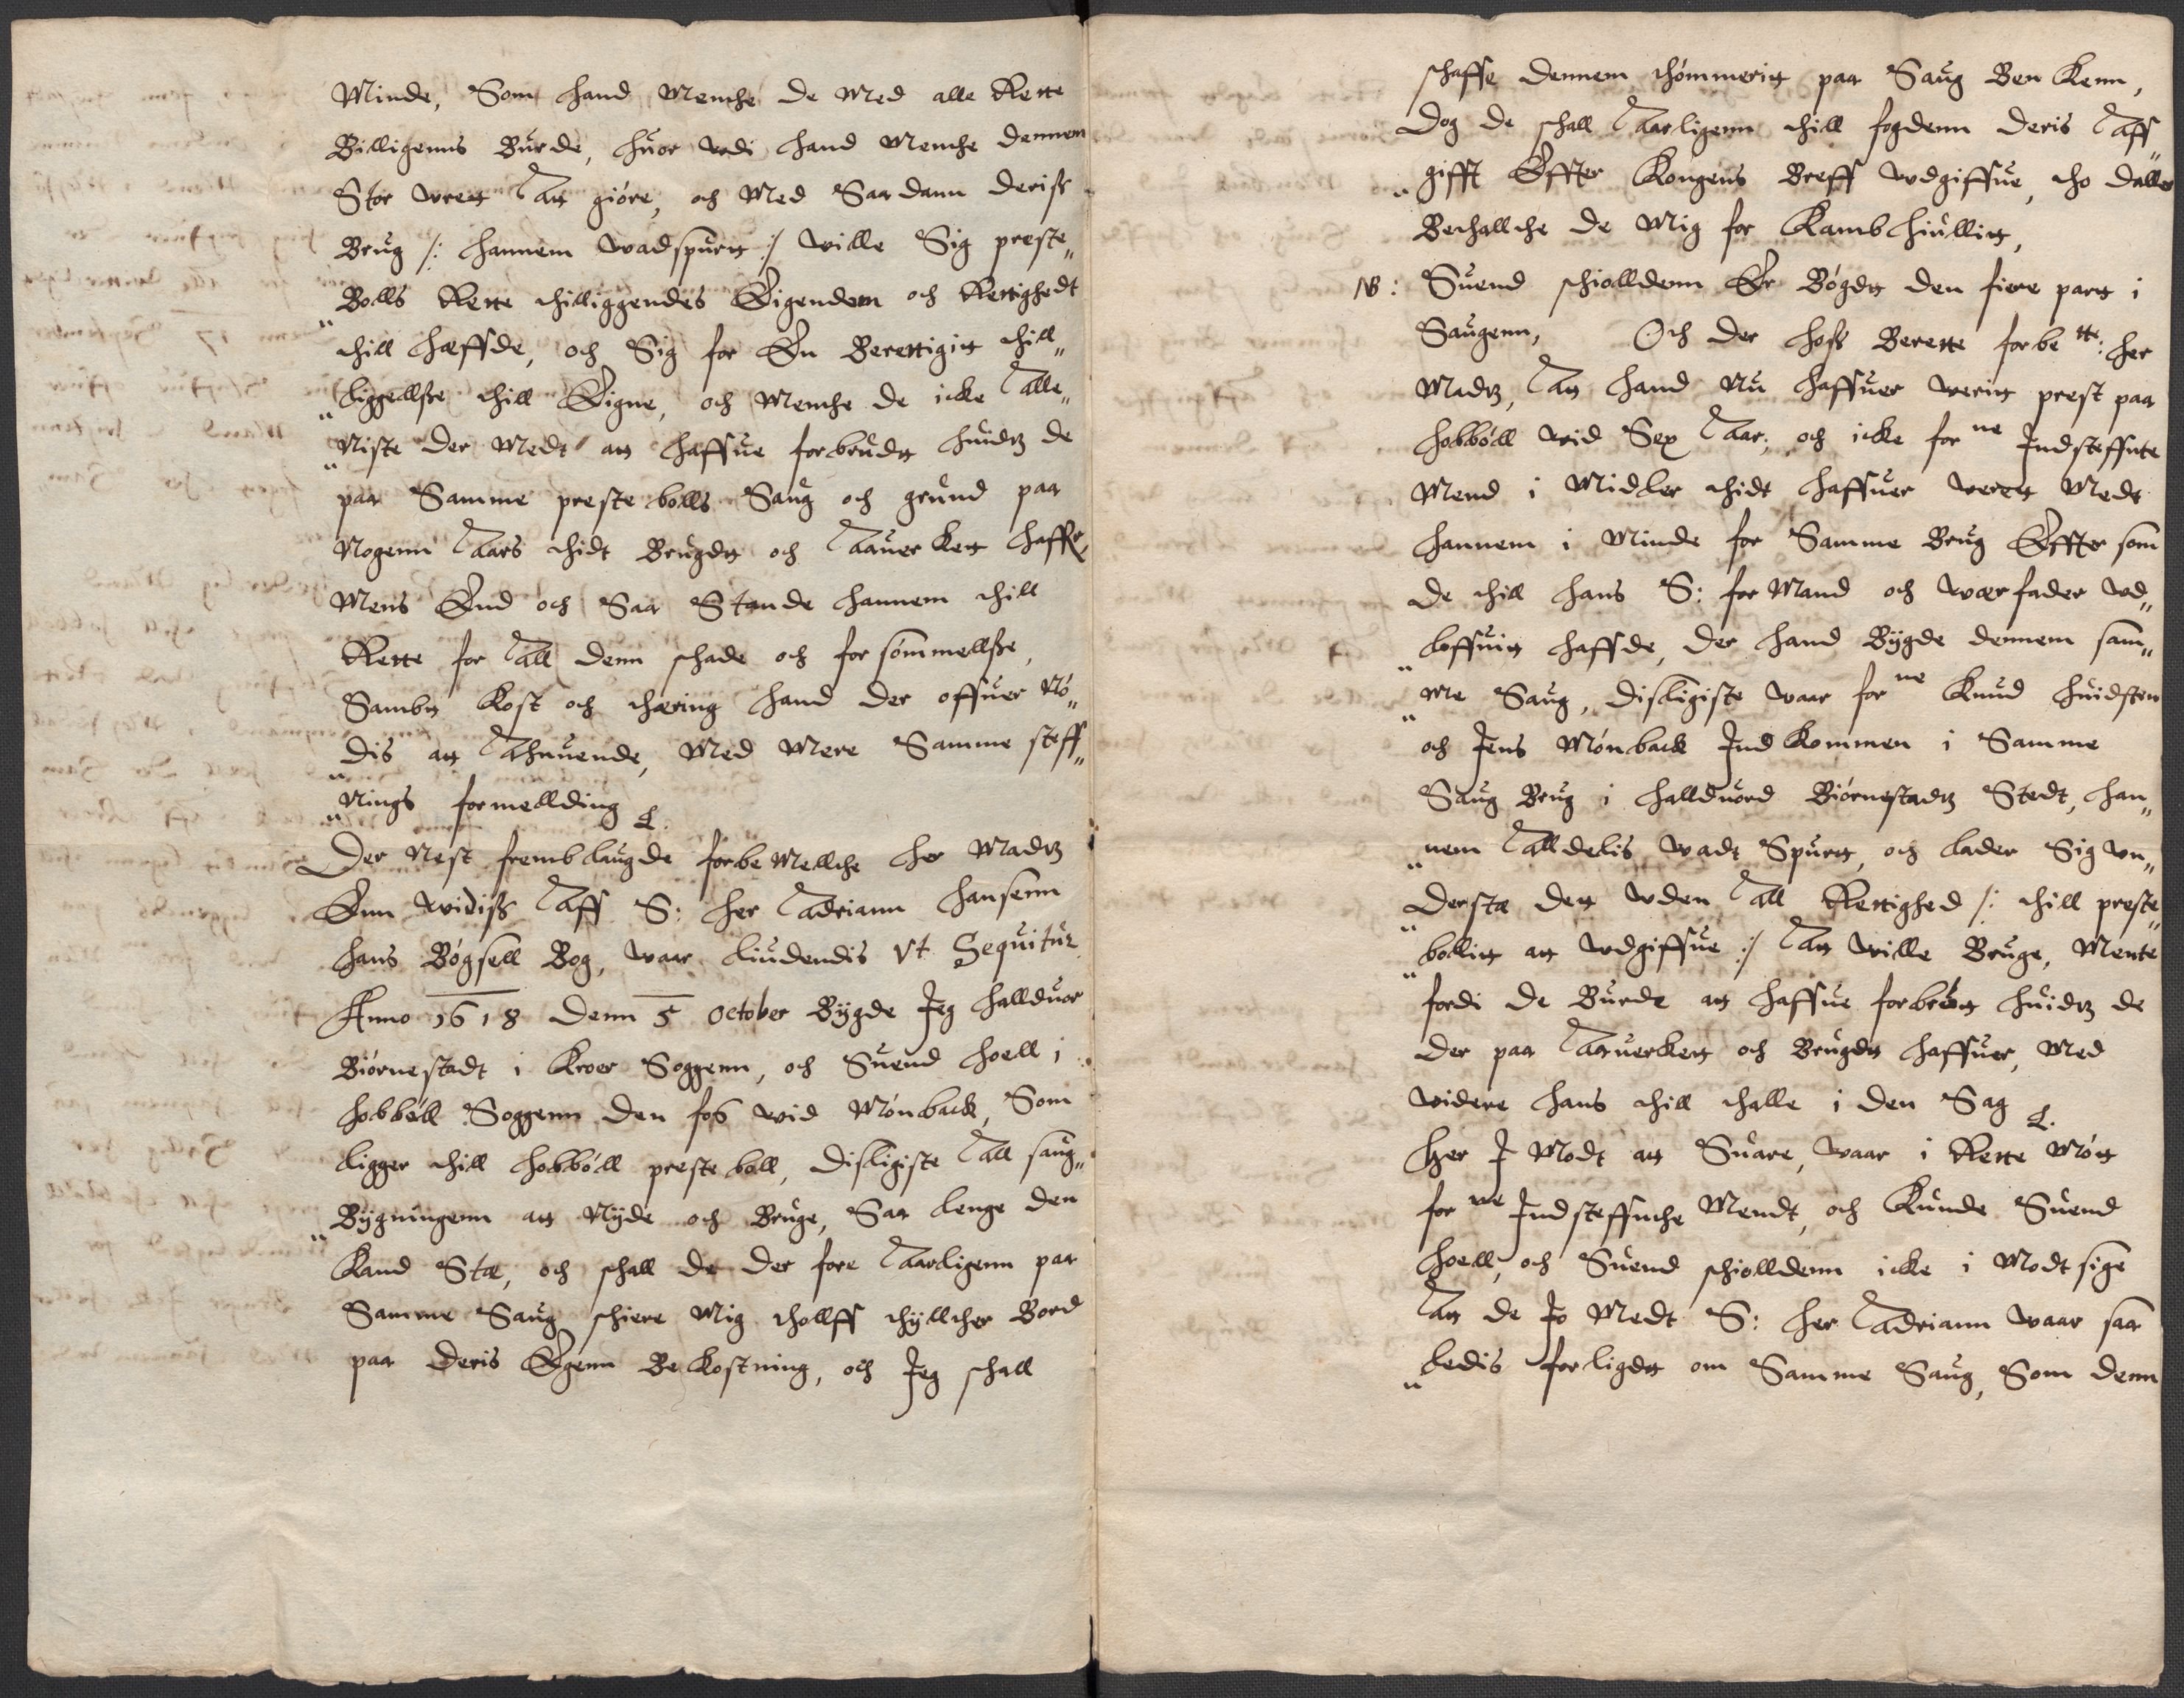 Minde, Som hand Menthe de Med alle Rette
Billigenns Burde, huor vdi hand Menthe dennem
Stor vrett att giöre, och Med Saadann deriss
Brug /: hannem vadspurtt :/ wille Sig preste„
„Bolls Rette thilliggendes Eigendom och Rettighedt
thill Hæffde, och Sig for En Berettigitt thill„
„liggellsse thill Eigne, och Menthe de icke alle„
„Niste der Medt att haffue forbrudtt huidtz de
paa Samme preste bolls Saug och grund paa
Nogenn Aars thidt Brugdtt och Aauerkett haffr,
Mens End och Saa Stande hannem thill
Rette for all denn schade och forsömmellsse,
Sambtt Kost och thæring hand der offuer Nö„
„dis att Ahnuende, Med Mere Samme steff„
„Nings formellding
Der Nest fremblaugde forbe Mellthe her Madtz
Enn vidiss Aff S: her Adriann Hansenn
hans Bögsell Bog, vaar liudendis Vt Sequitur
Anno 1618 denn 5 October Bygde Jeg Hallduor
Biörnestadt i Kroer Soggenn, och Suend Hoell i
Hobböll Soggenn den fos vid Mönback, Som
ligger thill Hobböll preste boll, disligiste all saug„
„Bygningenn att Nyde och Bruge, Saa lenge den
Kand Sta, och schall de der fore Aarligenn paa
Samme Saug schiere Mig thollff thyllther Bord
paa deris Egenn Bekostning, och Jeg schall
schaffe dennem thömmeritt paa Saug Ben Kenn,
Dog de schall Aarligenn thill fogdenn deris Aff„
„gifft Effter Kongens Breff vdgiffue, tho daller
Bethallthe de Mig for Kambhiullitt,
NB: Suend schiolldenn Er Bögdtt den fiere partt i
Saugenn, Och der hoss Berette forbe tte: her
Madtz, att hand Nu haffuer veritt prest paa
Hobböll vid Sex Aar, och icke for ne Indsteffnte
Mend i Midler thidt haffuer verett Medt
hannem i Minde for Samme Brug Effter som
de thill hans S: for Mand och Værfader vd„
„loffuitt haffde, der hand Bygde dennem sam„
„me Saug, disligiste vaar for ne Knud huidsten
och Jens Mönback Ind Kommen i Samme
Saug Brug i Hallduord Biörnestadtz Stedt, han„
„nem Alldelis vadt Spurtt, och lader Sig vn„
„dersta dett vden All Rettighed /: thill preste„
„bollitt att vdgiffue :/ att ville Bruge, Mente
fordi de Burde att haffue forbrött huidtz de
der paa Aauerkett och Brugdtt haffuer, Med
videre hans thill thalle i den Sag
Her I Modt att Suare, vaar i Rette Mött
for ne Indsteffnthe Mendt, och Kunde Suend
Hoell, och Suend schiolldenn icke i Modt sige
att de Jo Medt S: her Adriann vaar saa
„ledis forligdtt om Samme Saug, Som denn